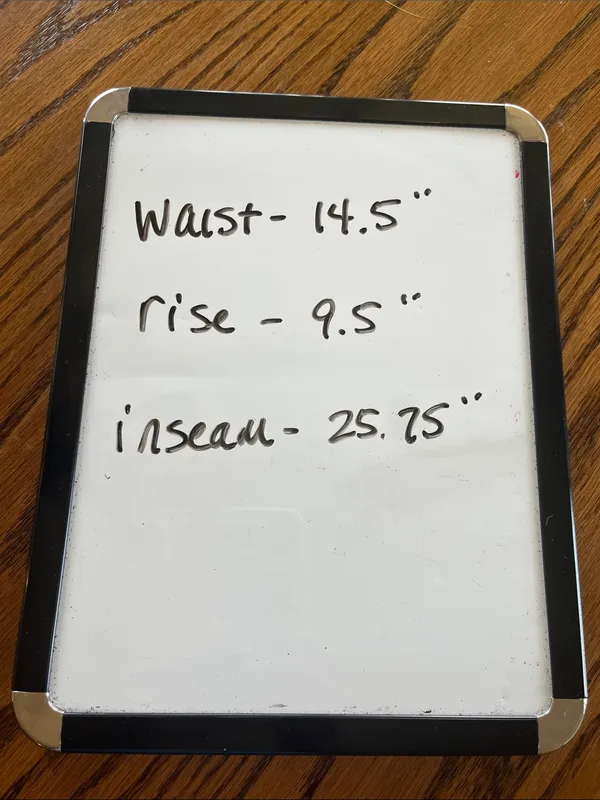 Waist- 14.5"
rise - 9.5"
inseam- 25.75"